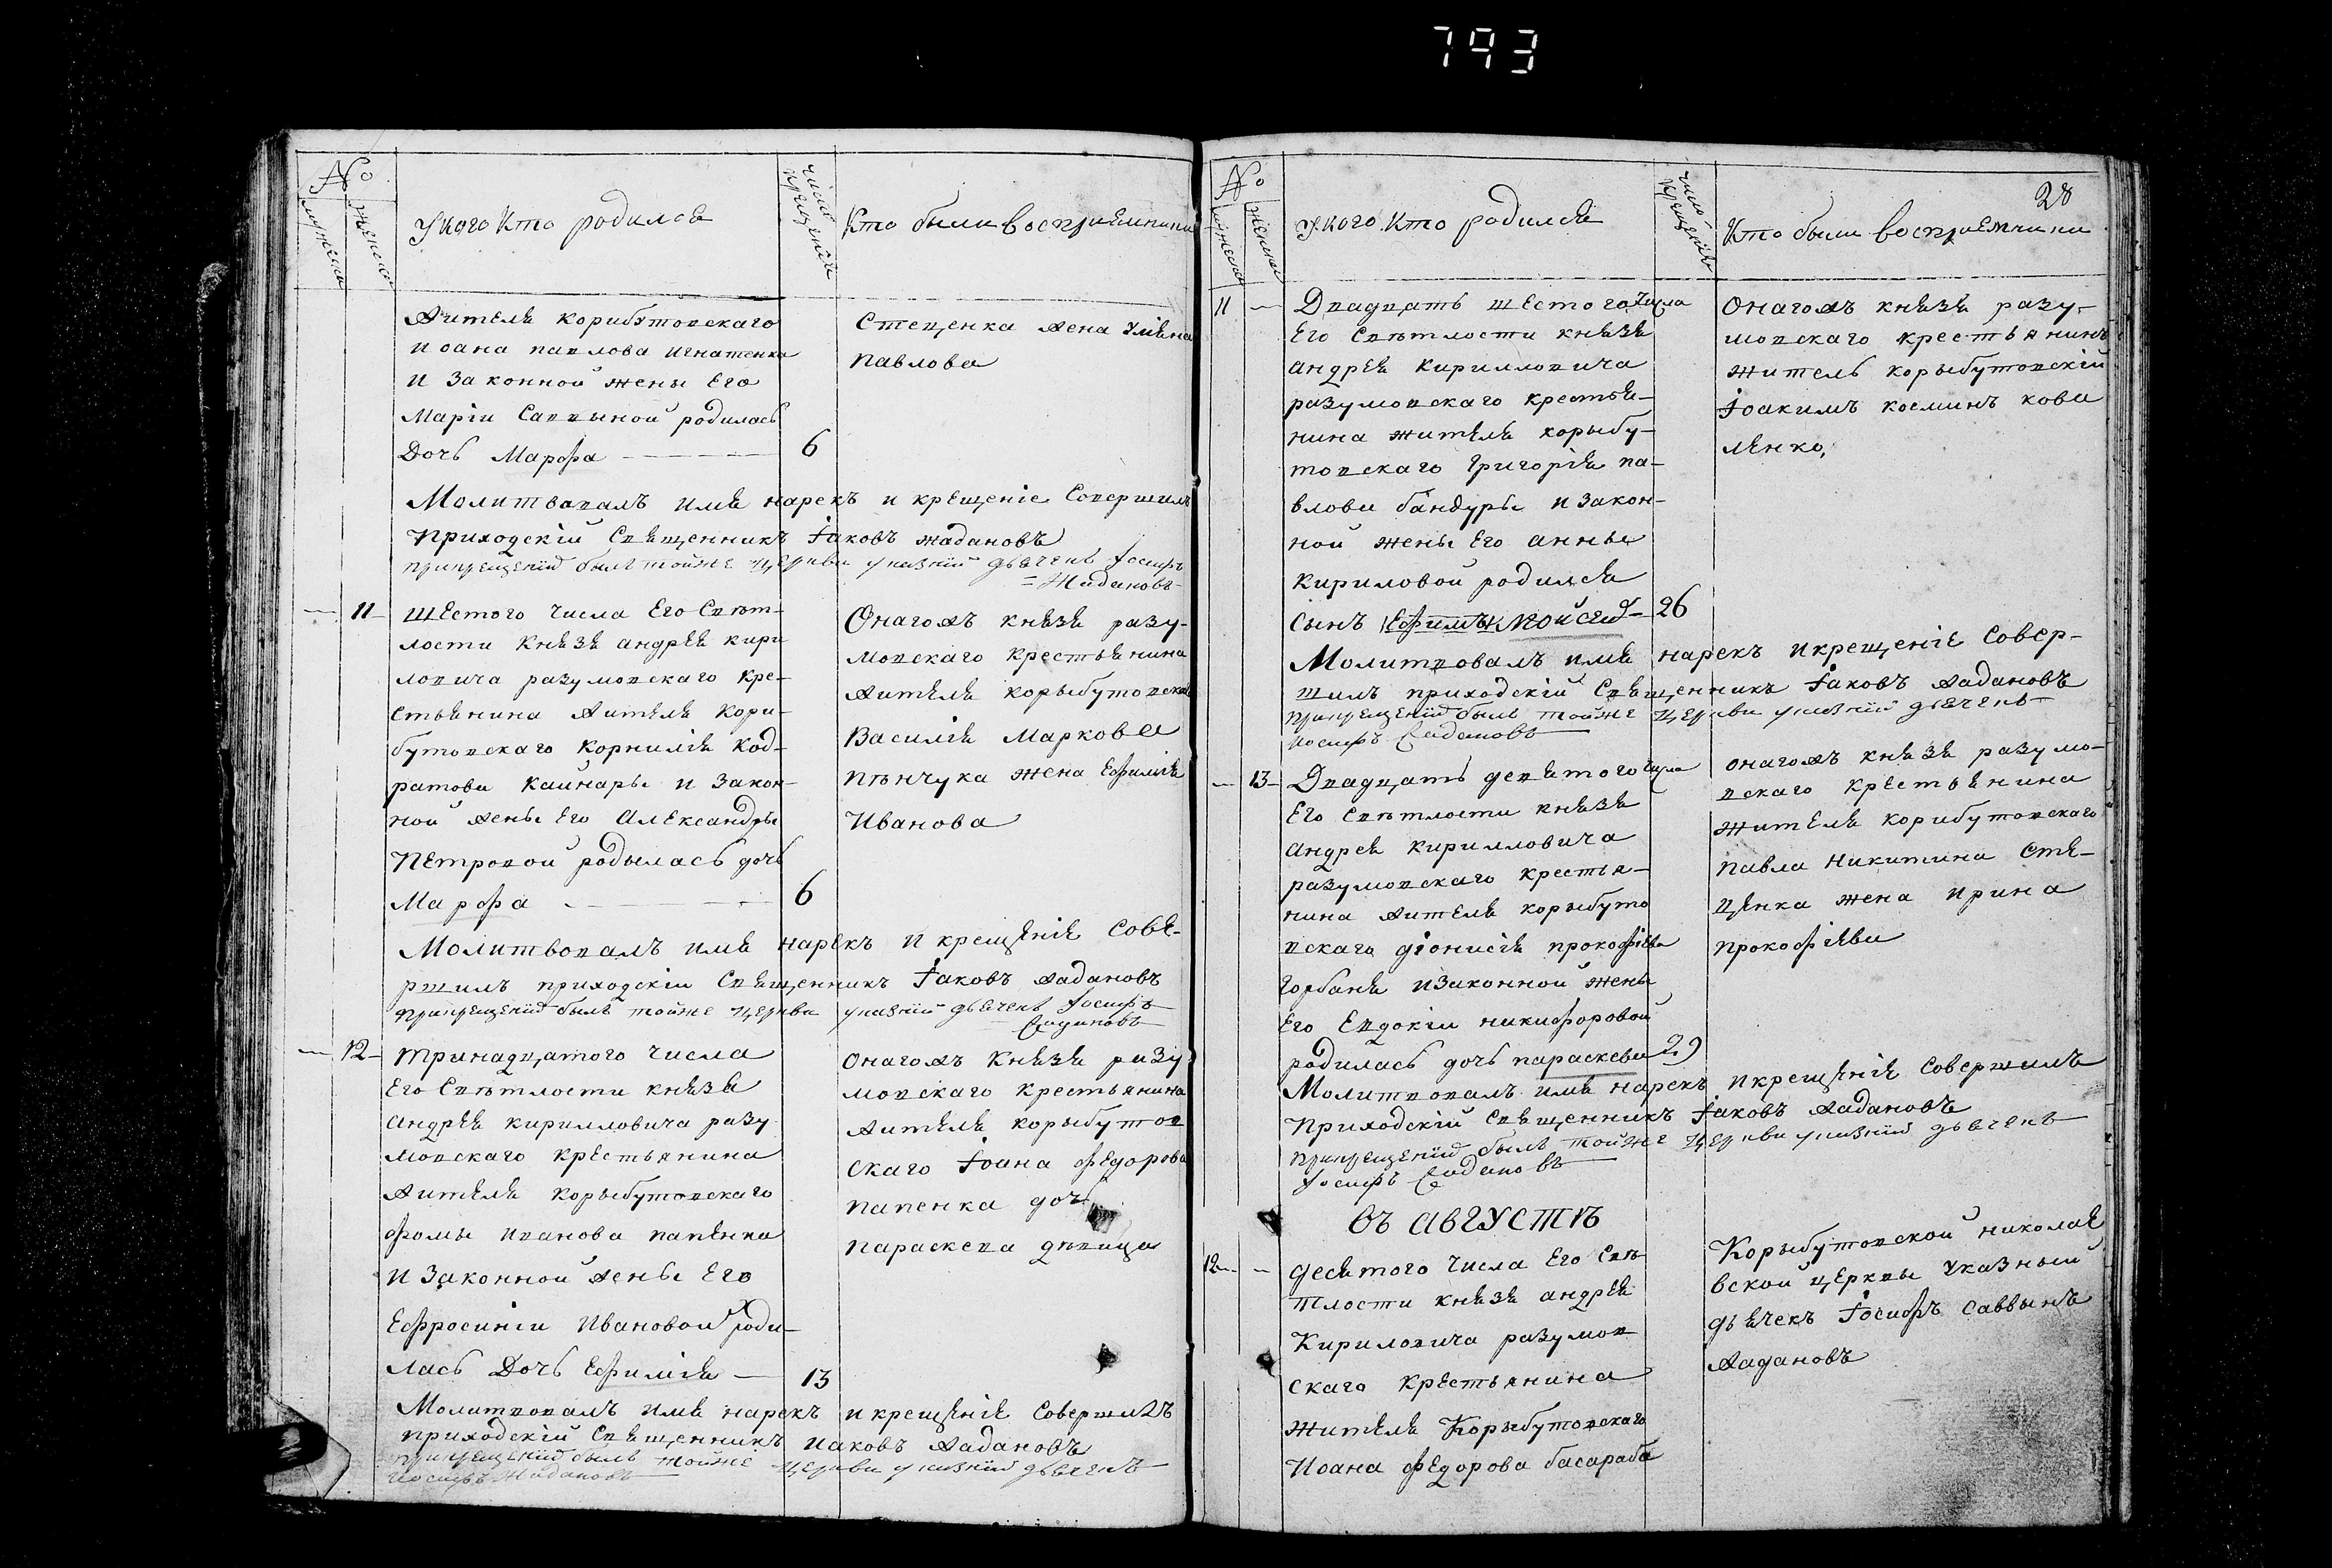 793
№
мужеска
женска
У кого Кто родился
число крещений
Кто были восприемники
Жителя корибутовского
Иоана павлова игнатенка
и законной жены Его
Маріи Саввыной родилась
Дочь Марфа 6
Стеценка жена Уліяна
Павлова
Молитвовалъ имя нарекъ и крещеніе Совершилъ
приходскій Священникъ Іаковъ жадановъ
при крещеніи былъ тойже церкви указній дьячекъ Іосифъ
Жадановъ
11 шестого числа Его Свѣт-
лости Князя андрея кири
ловича разумовскаго Кре-
стьянина жителя Кори-
бутовскаго Корнилія Код-
ратова Кайнары и Закон-
ной жены Его Александры
Петровой родылась дочь
Марфа 6
Онагожъ князя разу-
мовскаго Крестьянина
жителя корыбутовска
Василія Маркова
пѣнчука жена Ефимія
Иванова
Молитвовалъ имя нарекъ и крещеніе Сове-
ршилъ приходскіи Священникъ Іаковъ жадановъ
при крещеніи былъ тойже церкви указній дьячекъ Іосифъ
Жадановъ
12 тринадцатого числа
Его Свѣтлости князя
андрея кирилловича разу
мовскаго крестьянина
жителя корыбутовскаго
фомы иванова папенка
и Законной жены Его
Ефросиніи Ивановой роди-
лась Дочь Ефимія 13
Онагожъ Князя разу
мовскаго Крестьянина
жителя корыбутов
скаго Іоана федорова
папенка дочь
параскева дѣвица
Молитвовалъ имя нарекъ и крещеніе Совершилъ
приходскій Священникъ иаковъ жадановъ
при крещеніи былъ тойже церкви указній дьячекъ
Иосифъ Жадановъ
28
№
мужеска
женска
У кого Кто родился
число крещеній
Кто были восприемники
11 Двадцать шестого числа
Его Свѣтлости князя
андрея Кирилловича
разумовскаго крестья-
нина жителя корыбу-
товскаго Григорія па-
влова бандуры и закон-
ной жены Его анны
кириловой родился
Сынъ Ефимъ Мойсей 26
Онагожъ князя разу-
мовскаго крестьянинъ
житель корыбутовскій
Іоакимъ косминъ кова
ленко,
Молитвовалъ имя нарекъ и крещеніе Совер-
шилъ приходскій Священникъ Іаковъ жадановъ
при крещеніи былъ тойже церкви указній дьячекъ
Иосифъ Жадановъ
13 Двадцать девятого числа
Его Свѣтлости князя
андрея кирилловича
разумовскаго крестья-
нина жителя корыбуто
вскаго діонисія прокофіева
горбаня и законной жены
Его Евдокіи никифоровой
родилась дочь параскева 29
онагожъ князя разумо-
вскаго крестьянина
жителя корибутовскаго
павла никитина сте-
ценка жена ирина
прокофіева
Молитвовалъ имя нарекъ и крещеніе Совершилъ
приходскій Священникъ Іаковъ жадановъ
при крещеніи былъ тойже церкви указній дьячекъ
Іосифъ Жадановъ
въ АВГУСТѢ
12 десятого числа Его Свѣ
тлости князя андрея
Кириловича разумов
скаго крестьянина
жителя Корыбутовскаго
Иоана федорова басараба
Корыбутовской николае
вской церквы Указный
дьячекъ Іосифъ саввынъ
жадановъ